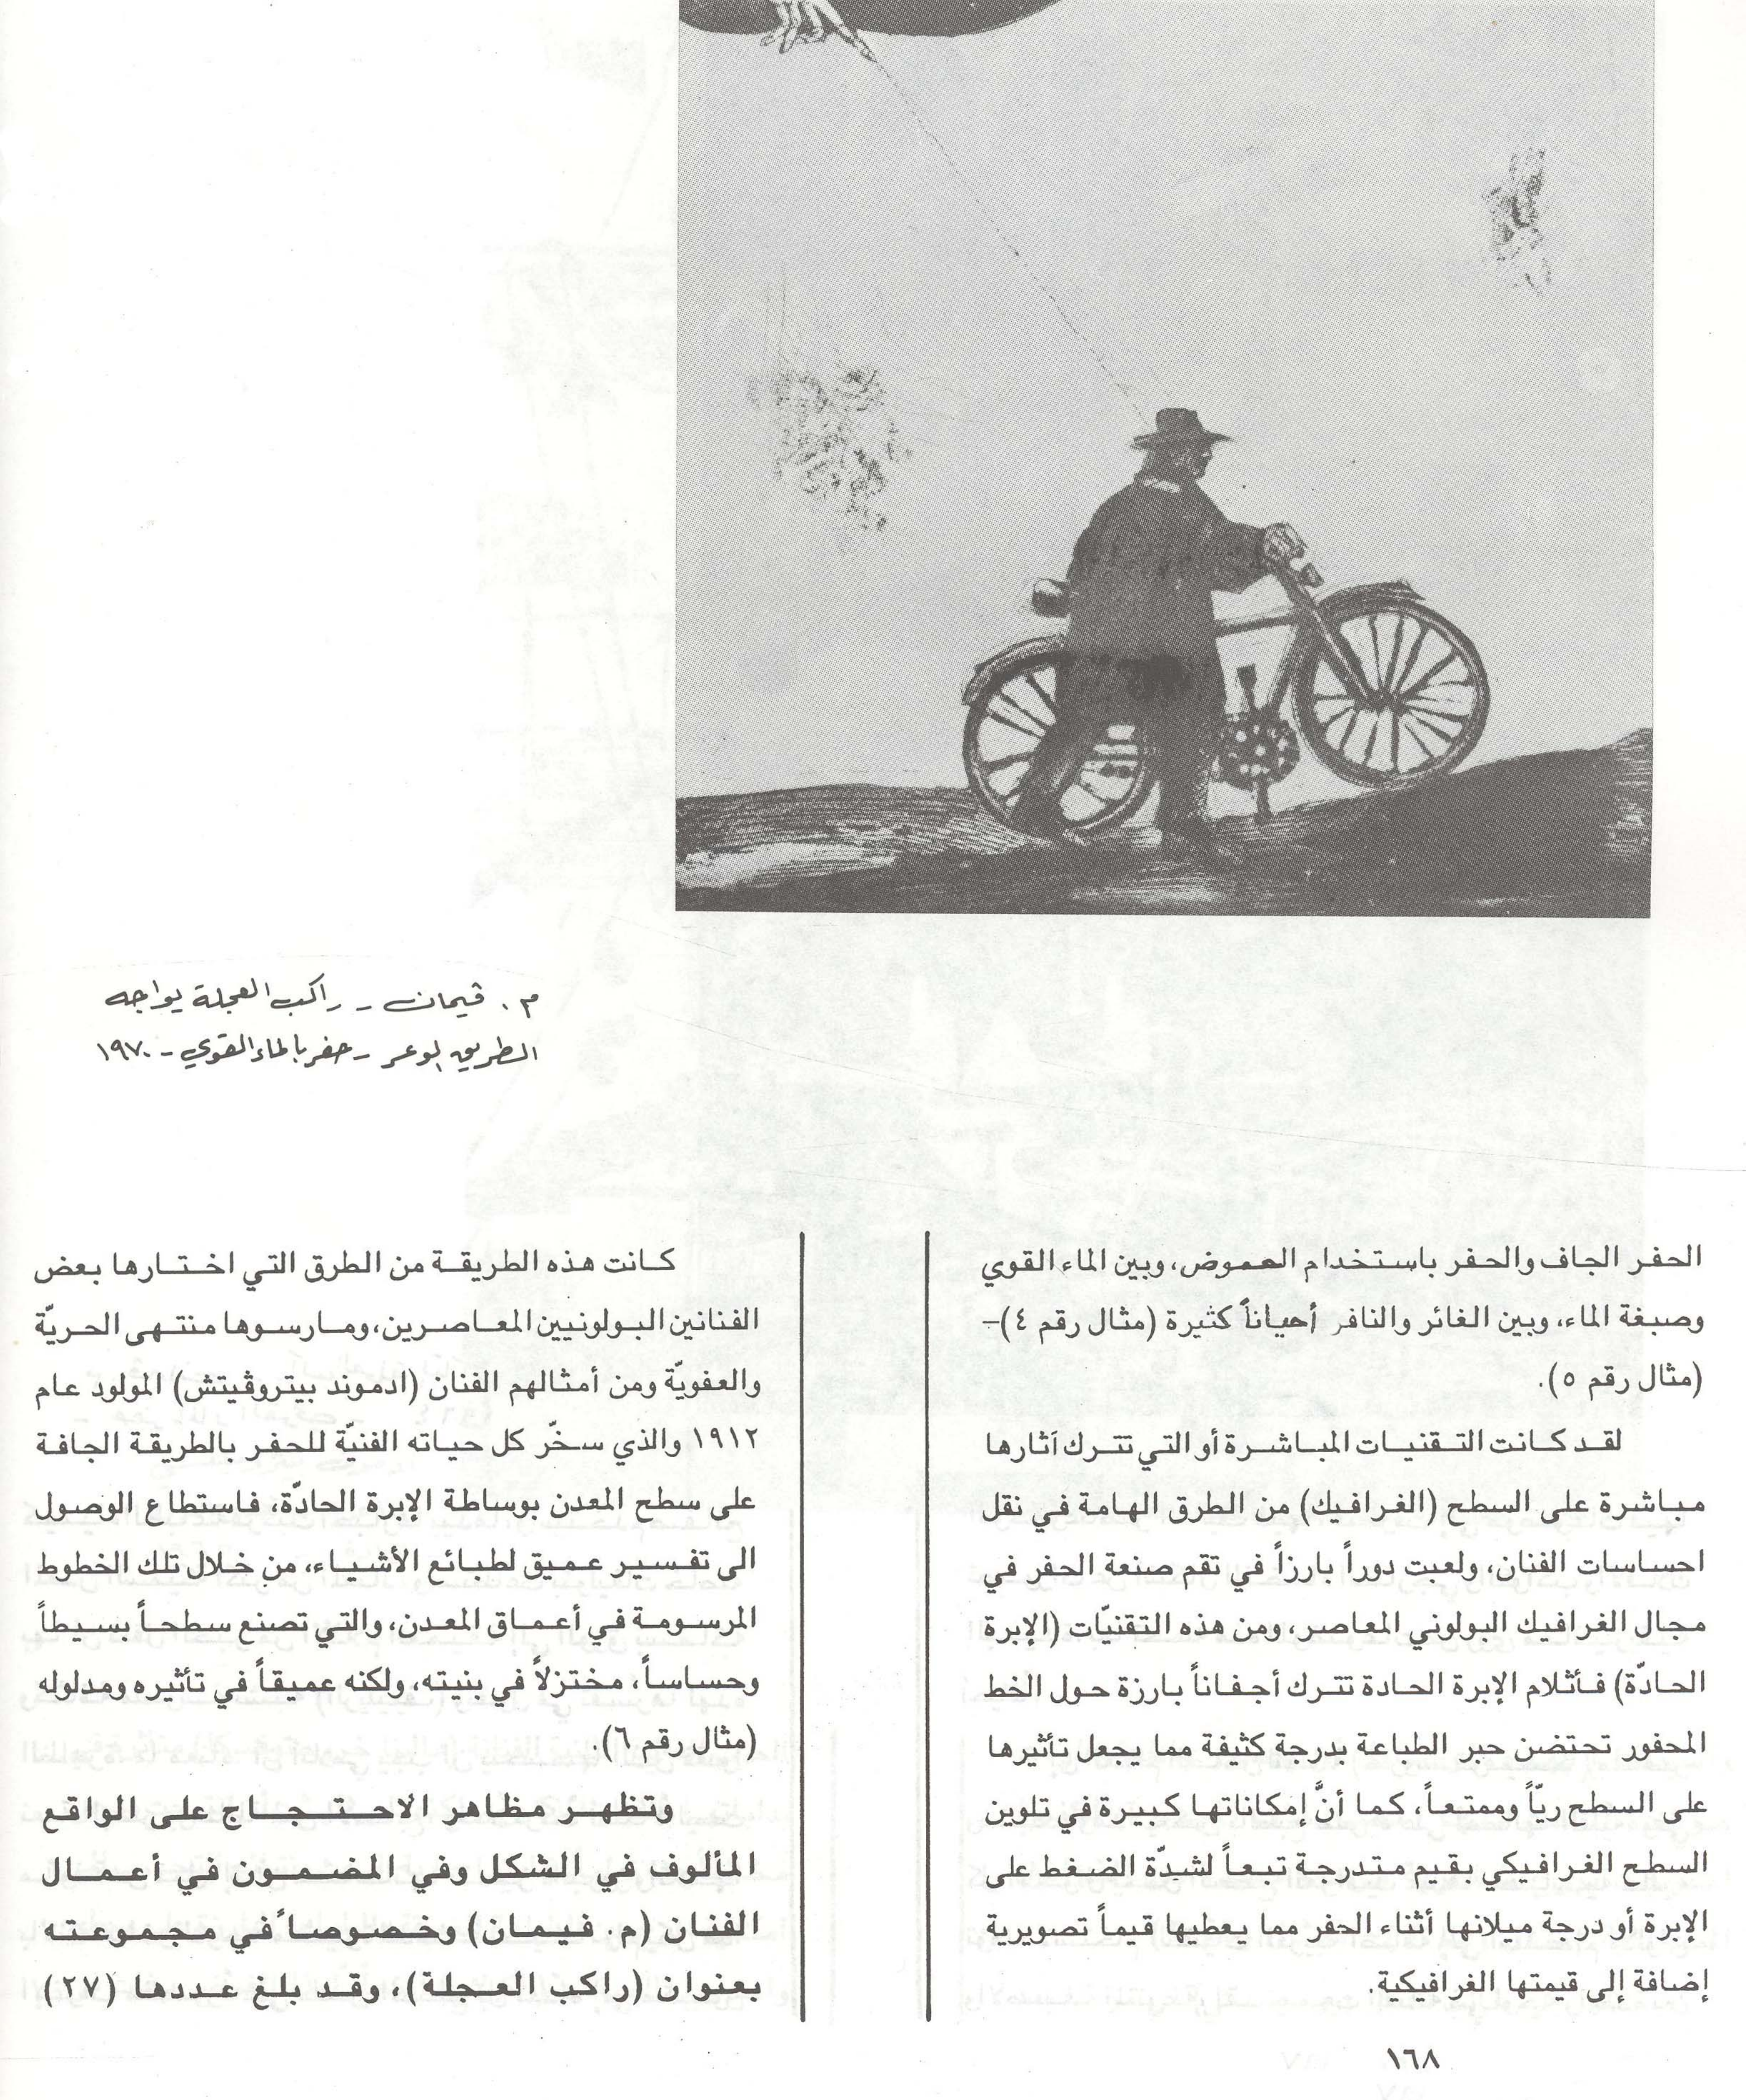 م. ڤيمان - راكب العجلة يواجه
الطريق الوعر - حفر بالماء القوي - ١٩٧٠
الحفر الجاف والحفر باستخدام الحموض، وبين الماء القوي
وصبغة الماء، وبين الغائر والنافر أحياناً كثيرة (مثال رقم ٤)-
(مثال رقم ٥).
لقد كانت التقنيات المباشرة أو التي تترك آثارها
مباشرة على السطح (الغرافيك) من الطرق الهامة في نقل
احساسات الفنان، ولعبت دوراً بارزاً في تقم صنعة الحفر في
مجال الغرافيك البولوني المعاصر، ومن هذه التقنيّات (الإبرة
الحادّة) فأثلام الإبرة الحادة تترك أجفاناً بارزة حول الخط
المحفور تحتضن حبر الطباعة بدرجة كثيفة مما يجعل تأثيرها
على السطح ريّاً وممتعاً، كما أنَّ إمكاناتها كبيرة في تلوين
السطح الغرافيكي بقيم متدرجة تبعاً لشدّة الضغط على
الإبرة أو درجة ميلانها أثناء الحفر مما يعطيها قيماً تصويرية
إضافة إلى قيمتها الغرافيكية.
كانت هذه الطريقة من الطرق التي اختارها بعض
الفنانين البولونيين المعاصرين، ومارسوها منتهى الحريّة
والعفويّة ومن أمثالهم الفنان (ادموند بيتروڤيتش) المولود عام
١٩١٢ والذي سخّر كل حياته الفنيّة للحفر بالطريقة الجافة
على سطح المعدن بوساطة الإبرة الحادّة، فاستطاع الوصول
الى تفسير عميق لطبائع الأشياء، من خلال تلك الخطوط
المرسومة في أعماق المعدن، والتي تصنع سطحاً بسيطاً
وحساساً، مختزلاً في بنيته، ولكنه عميقاً في تأثيره ومدلوله
(مثال رقم ٦).
وتظهر مظاهر الاحتجاج على الواقع
المألوف في الشكل وفي المضمون في أعمال
الفنان (م. فيمان) وخصوصاً في مجموعته
بعنوان (راكب العجلة)، وقد بلغ عددها (٢٧)
١٦٨